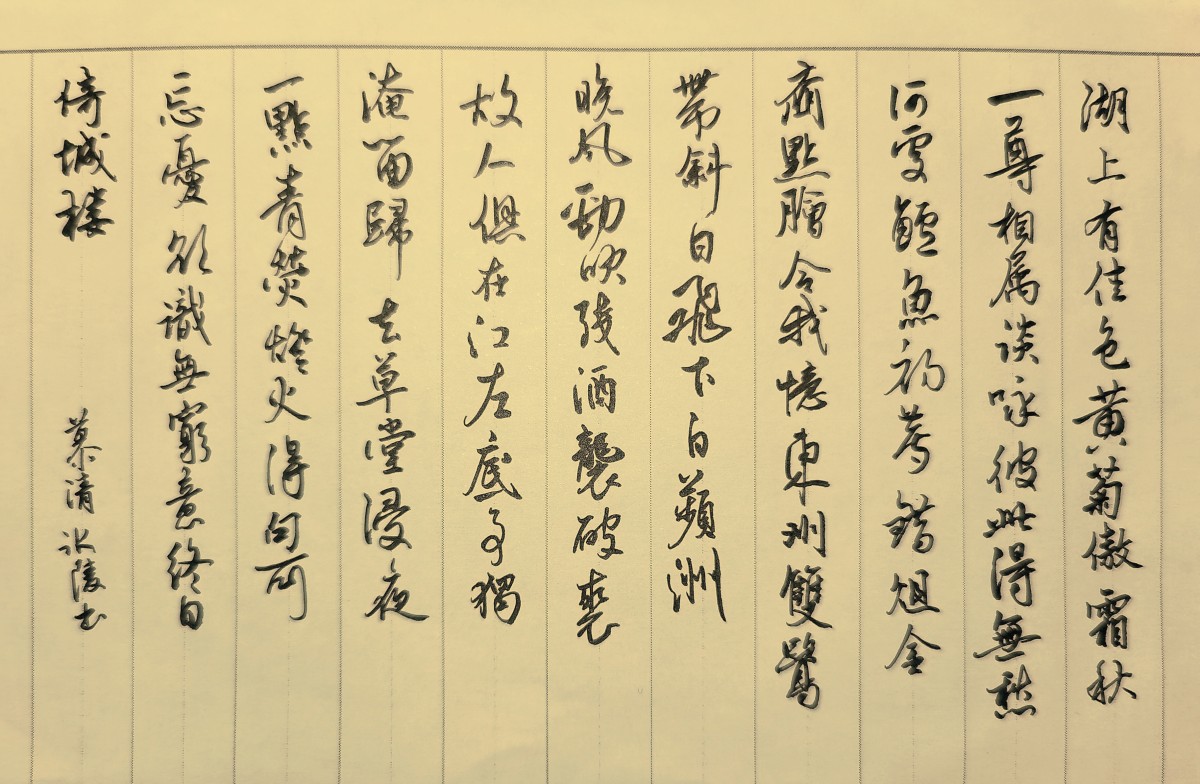 湖上有佳色黃菊傲霜秋
一尊相属談咏彼此得無愁
何處鱸魚初薦錯俎金
齑點膾令我憶東州雙鷺
帶斜日飛下白蘋洲
晚風勁吹殘酒襲破裘
故人俱在江左底事獨
淹留歸去草堂浸夜
一點青熒燈火得句可
忘憂欲識無窮意終日
倚城楼
慕清 陵书